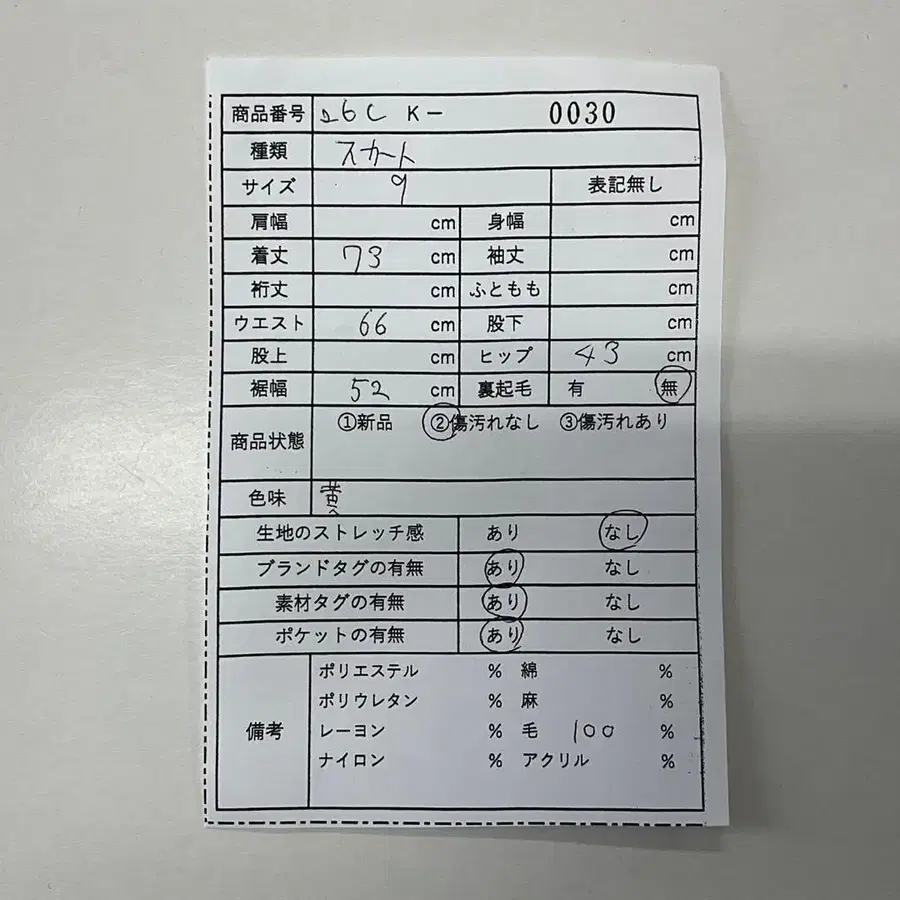 商品番号 26C K- 0030
種類 スカート
サイズ 9 表記無し
肩幅 cm 身幅 cm
着丈 73 cm 袖丈 cm
裄丈 cm ふともも cm
ウエスト 66 cm 股下 cm
股上 cm ヒップ 43 cm
裾幅 52 cm 裏起毛 有 無
商品状態 ①新品 ②傷汚れなし ③傷汚れあり
色味 黄
生地のストレッチ感 あり なし
ブランドタグの有無 あり なし
素材タグの有無 あり なし
ポケットの有無 あり なし
備考
ポリエステル % 綿 %
ポリウレタン % 麻 %
レーヨン % 毛 100 %
ナイロン % アクリル %